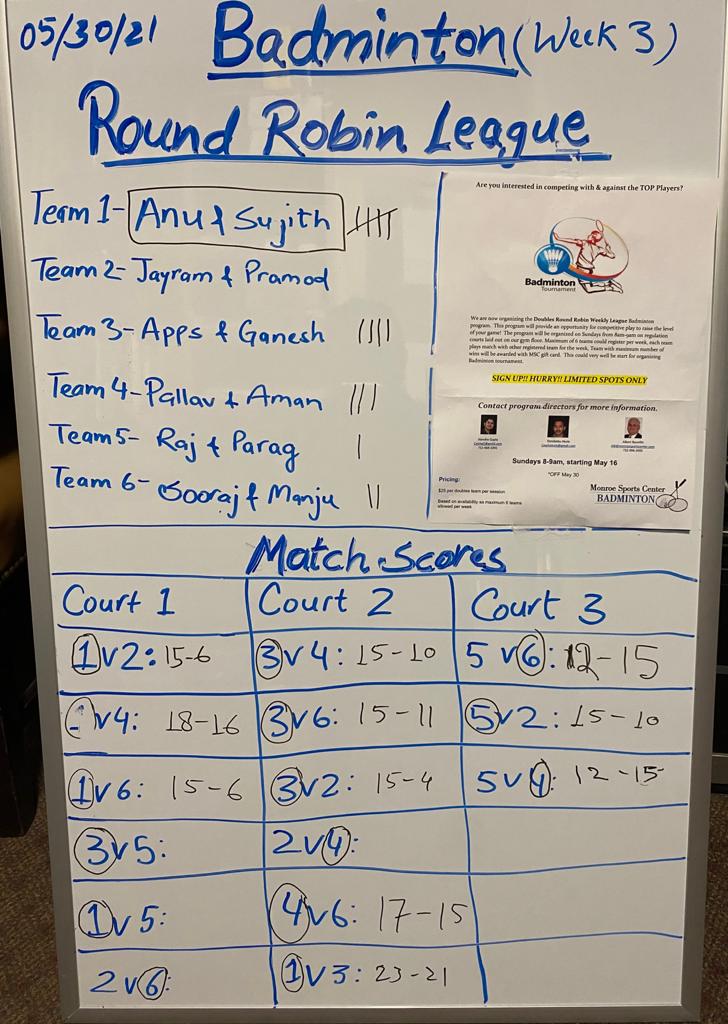 05/30/21 Badminton (Week 3)
Round Robin League
Team 1- Anu & Sujith
Team 2- Jayram & Pramod
Team 3- Apps & Ganesh
Team 4- Pallav & Aman
Team 5- Raj & Parag
Team 6- Sooraj & Manju
Are you interested in competing with & against the TOP Players?
Badminton
Tournament
We are now organizing the Doubles Round Robin Weekly League Badminton
program. This program will provide an opportunity for competitive play to raise the level
of your game! The program will be organized on Sundays from 8am-9am on regulation
courts laid out on our gym floor. Maximum of 6 teams could register per week, each team
plays match with other registered team for the week. Team with maximum number of
wins will be awarded with MSC gift card. This could very well be start for organizing
Badminton tournament.
SIGN UP!! HURRY!! LIMITED SPOTS ONLY
Contact program directors for more information.
Sundays 8-9am, starting May 16
*OFF May 30
Pricing:
$25 per doubles team per session
Based on availability as maximum 6 teams
allowed per week
Monroe Sports Center
BADMINTON
Match Scores
Court 1 Court 2 Court 3
1v2: 15-6 3v4: 15-10 5v6: 12-15
1v4: 18-16 3v6: 15-11 5v2: 15-10
1v6: 15-6 3v2: 15-4 5v4: 12-15
3v5: 2v4:
1v5: 4v6: 17-15
2v6: 1v3: 23-21